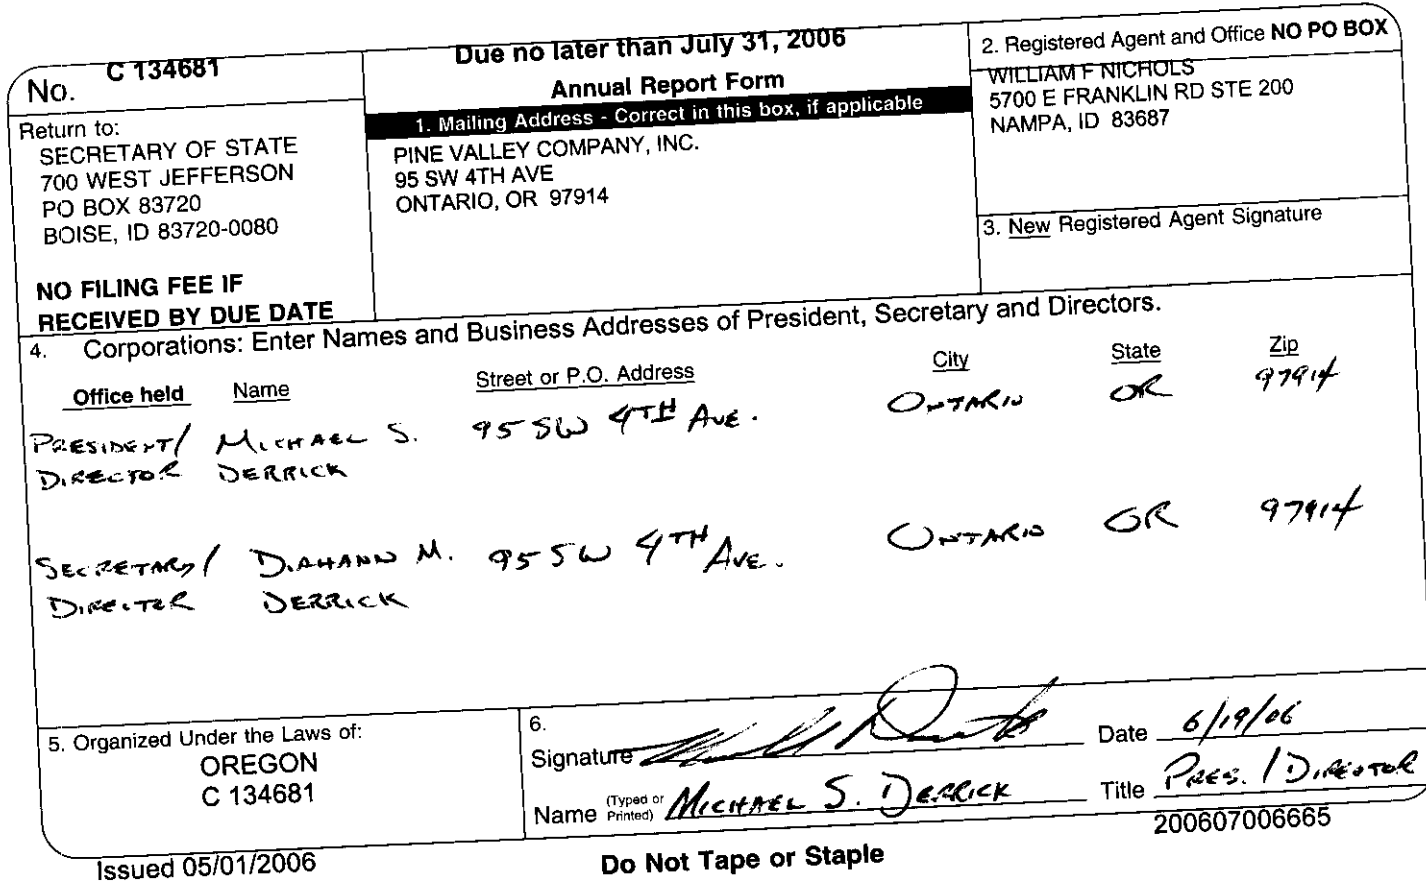 No. C 134681
Return to:
SECRETARY OF STATE
700 WEST JEFFERSON
PO BOX 83720
BOISE, ID 83720-0080
NO FILING FEE IF
RECEIVED BY DUE DATE
Due no later than July 31, 2006
Annual Report Form
1. Mailing Address - Correct in this box, if applicable
PINE VALLEY COMPANY, INC.
95 SW 4TH AVE
ONTARIO, OR 97914
2. Registered Agent and Office NO PO BOX
WILLIAM F NICHOLS
5700 E FRANKLIN RD STE 200
NAMPA, ID 83687
3. New Registered Agent Signature
4. Corporations: Enter Names and Business Addresses of President, Secretary and Directors.
Office held Name Street or P.O. Address City State Zip
PRESIDENT/ MICHAEL S. 95 SW 4TH AVE. ONTARIO OR 97914
DIRECTOR DERRICK
SECRETARY/ DIAHANN M. 95 SW 4TH AVE. ONTARIO OR 97914
DIRECTOR DERRICK
5. Organized Under the Laws of:
OREGON
C 134681
6.
Signature Date 6/19/06
Name (Typed or Printed) MICHAEL S. DERRICK Title PRES. / DIRECTOR
200607006665
Issued 05/01/2006 Do Not Tape or Staple